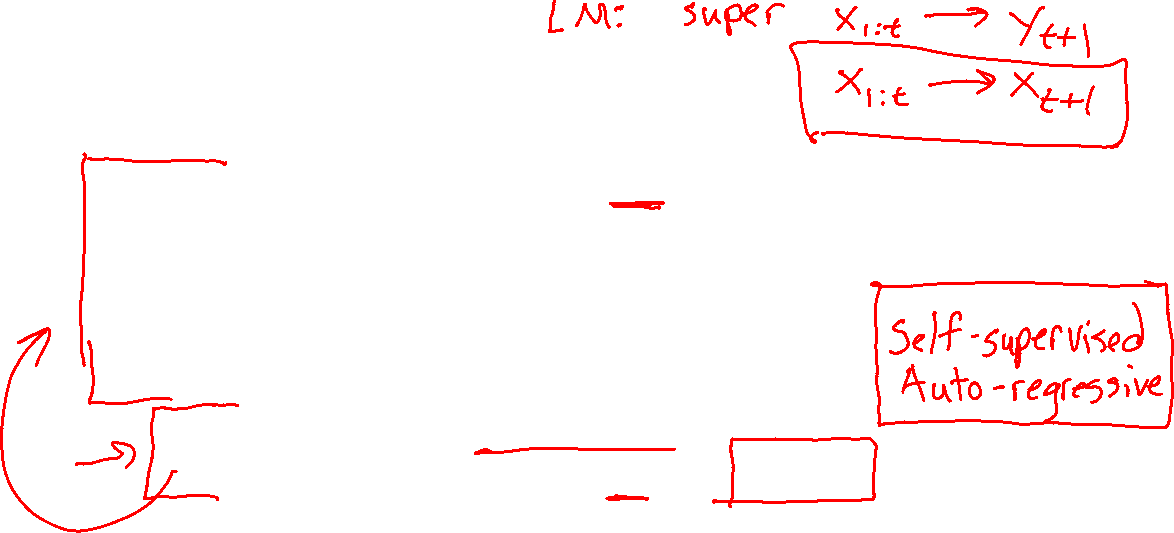 LM: super x₁:t → y_t+1
x₁:t → x_t+1
Self-supervised
Auto-regressive